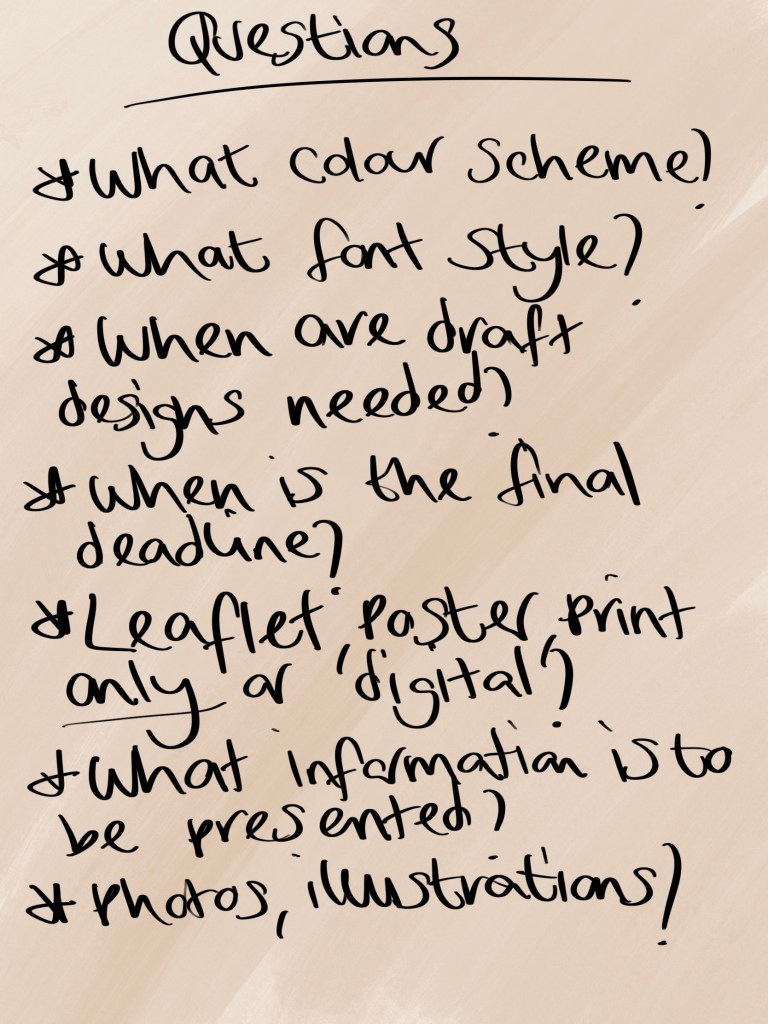 Questions
* What colour scheme?
* What font style?
* When are draft
designs needed?
* When is the final
deadline?
* Leaflet, poster, print
only or 'digital'?
* What information is to
be presented?
* Photos, illustrations?